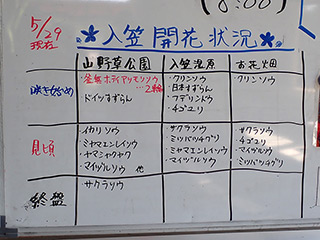 5/29
現在
入笠 開花 状況
山野草公園 入笠湿原 お花畑
咲き始め
・釜無ホテイアツモリソウ
…2輪
・ドイツすずらん
・クリンソウ
・日本すずらん
・ズダヤクシュ
・チゴユリ
クリンソウ
見頃
・イカリソウ
・ミヤマエンレイソウ
・ヤマシャクヤク
・マイヅルソウ 他
・サクラソウ
・ミツバツチグリ
・ミヤマエンレイソウ
・マイヅルソウ
・サクラソウ
・チゴユリ
・マイヅルソウ
・ミツバツチグリ
終盤
サクラソウ